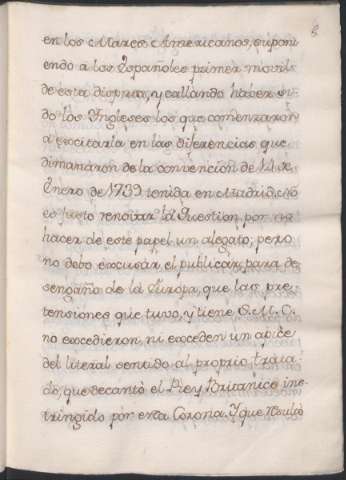 8
en los Mares Americanos, suponi
endo a los Españoles primer movil
de esta disputa, y callando haver si
do los Yngleses los que comenzaron
a excitarla en las diferencias que
dimanaron de la convencion de 14 de
Enero de 1739 tenida en Madrid. No
es justo renovar la Question por no
hacer de este papel un alegato, pero
no debo excusar el publicar, para de
sengaño de la Europa, que las pre
tensiones que tuvo, y tiene S. M. C.
no excedieron, ni exceden un apice
del literal sentido al proprio trata
do, que decantò el Rey Britanico in
fringido por esta Corona. Y que